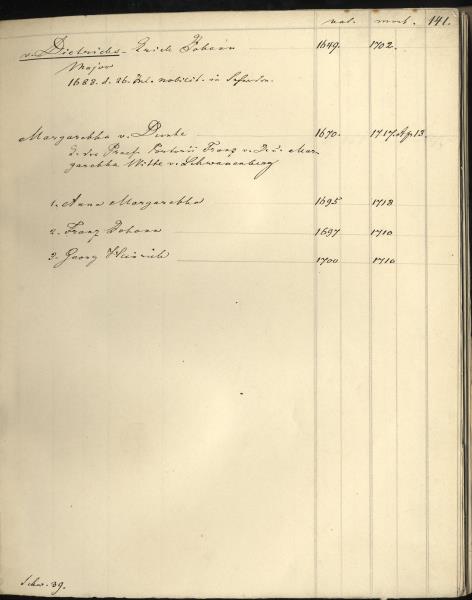 nat. mort. 141.
v. Dietrichs - Erich Johann 1649. 1702.
Major
1688. d. 26. nobilit. in Schweden.
Margaretha v. Dunte 1670. 1717. Ap. 13.
d. des Praef. Portorii Franz v. D. u. Mar-
garetha Witte v. Schwanenberg
1. Anna Margaretha 1695 1718
2. Franz Johann 1697 1710
3. Georg Heinrich 1700 1710
Schw. 39.